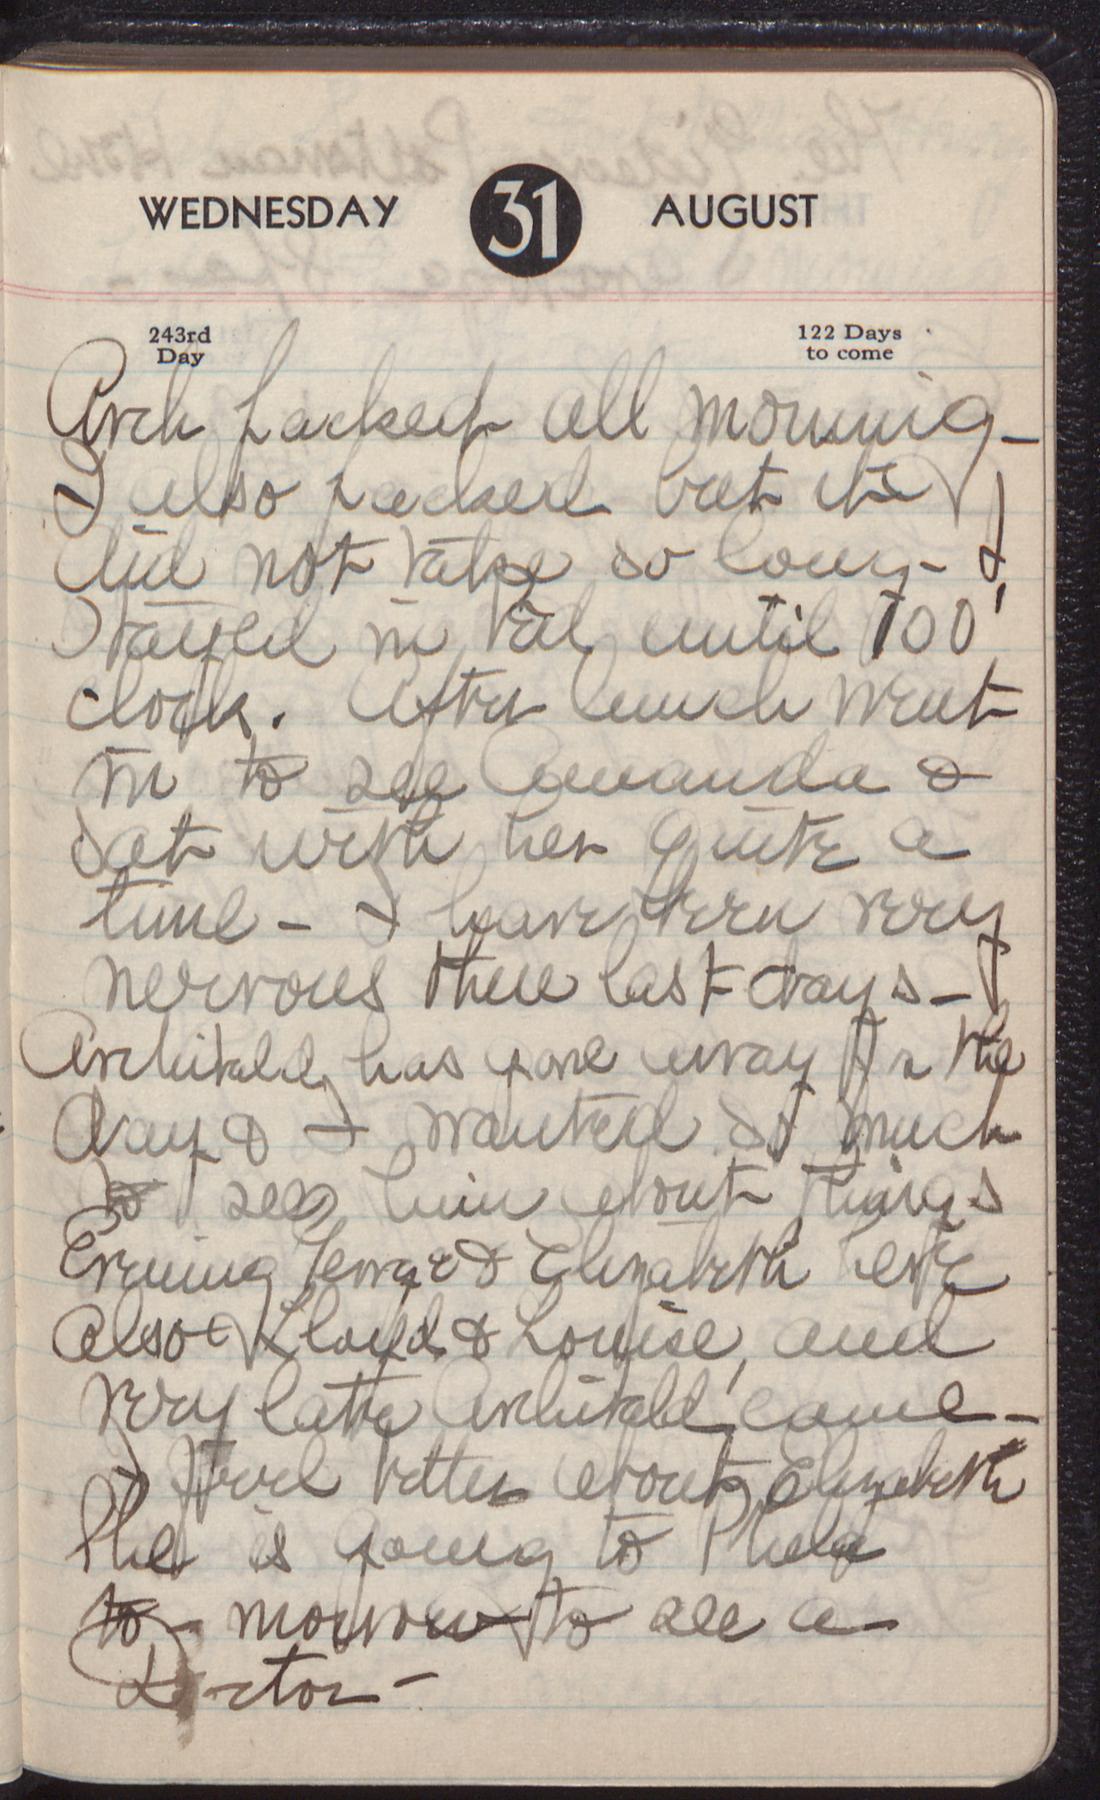 WEDNESDAY 31 AUGUST
243rd Day
122 Days to come
Arch packed all morning -
I also packed but it
did not take so long - I
stayed in bed until 10 O'
clock. After lunch went
in to see Amanda &
sat with her quite a
time - I have been very
nervous these last days - I
Archibald has gone away for the
day & I wanted so much
to see him about things
Evening George & Elizabeth here
also Lloyd & Louise, and
very late Archibald came -
I feel better about Elizabeth
She is going to Phila
to-morrow to see a
Doctor -